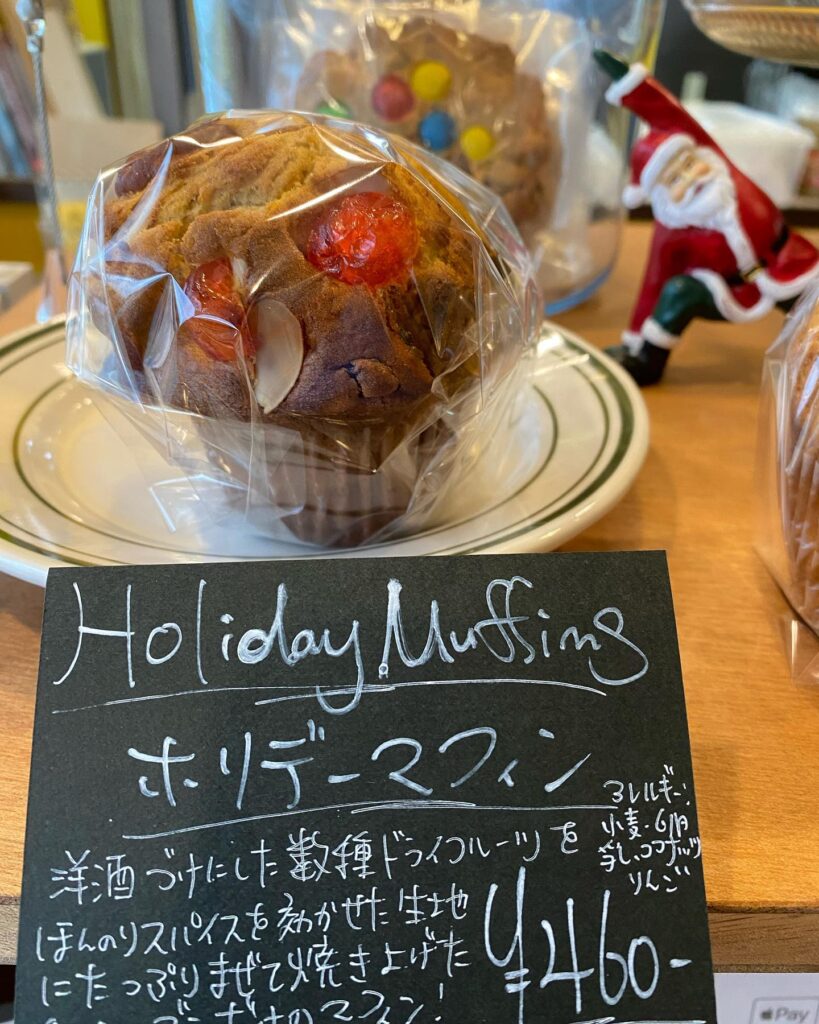 Holiday Muffing
ホリデーマフィン
アレルギー:
小麦・卵
乳・ココナッツ
りんご
洋酒づけにした数種ドライフルーツを
ほんのりスパイスを効かせた生地
にたっぷりまぜて焼き上げた
マフィン!
¥460-
Pay